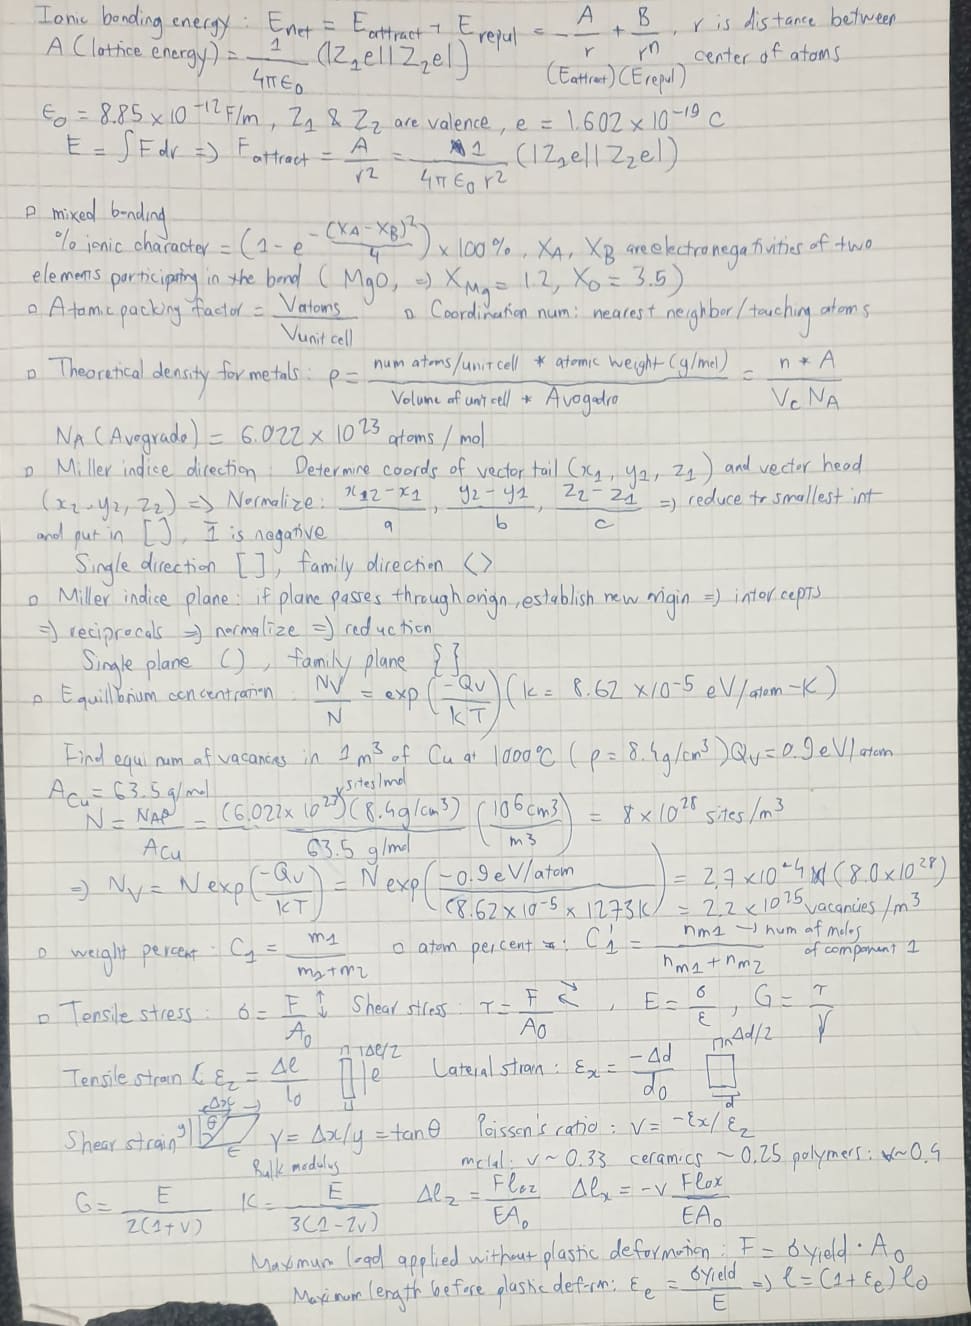 Ionic bonding energy: E_net = E_attract + E_repul = -A/r + B/r^n, r is distance between
A (lattice energy) = 1/(4πϵ0) (|Z1e||Z2e|) (E_attract) (E_repul) center of atoms
ϵ0 = 8.85 × 10^-12 F/m, Z1 & Z2 are valence, e = 1.602 × 10^-19 C
E = ∫Fdr => F_attract = A/r^2 = 1/(4πϵ0 r^2) (|Z1e||Z2e|)
▫ mixed bonding
% ionic character = (1 - e^(-(XA-XB)^2/4)) × 100%, XA, XB are electronegativities of two
elements participating in the bond (MgO, => X_Mg = 1.2, X_O = 3.5)
▫ Atomic packing factor = Vatoms/Vunit cell ▫ Coordination num: nearest neighbor/touching atoms
▫ Theoretical density for metals: ρ = (num atoms/unit cell * atomic weight (g/mol))/(Volume of unit cell * Avogadro) = (n * A)/(Vc NA)
NA (Avogrado) = 6.022 × 10^23 atoms/mol
▫ Miller indice direction: Determine coords of vector tail (x1, y2, z1) and vector head
(x2, y2, z2) => Normalize: (x2-x1)/a, (y2-y1)/b, (z2-z1)/c => reduce to smallest int
and put in [], 1̄ is negative
Single direction [], family direction <>
▫ Miller indice plane: if plane passes through orign, establish new origin => intercepts
=> reciprocals => normalize => reduction
Single plane (), family plane {}
▫ Equilibrium concentration: Nv/N = exp(-Qv/KT) (k = 8.62 × 10^-5 eV/atom-K)
Find equi num of vacancies in 1m^3 of Cu at 1000°C (ρ = 8.4g/cm^3) Qv = 0.9eV/atom
A_Cu = 63.5 g/mol
N = NAρ/A_Cu = (6.022 × 10^23 sites/mol)(8.4g/cm^3)/(63.5 g/mol) (10^6 cm^3/m^3) = 8 × 10^28 sites/m^3
=> Nv = N exp(-Qv/KT) = N exp(-0.9eV/atom/(8.62 × 10^-5 × 1273K)) = 2.7 × 10^-4 (8.0 × 10^28)
= 2.2 × 10^25 vacancies/m^3
▫ weight percent: C1 = m1/(m1+m2) ▫ atom percent: C1' = nm1/(nm1+nm2) → num of moles of component 1
▫ Tensile stress: σ = F/A0 ↕ Shear stress: τ = F/A0 ⇄, E = σ/ε, G = τ/γ
Tensile strain: εz = Δl/l0 Δl/2 l Lateral strain: εx = -Δd/d0 Δd/2 d
Shear strain Δx y θ γ = Δx/y = tanθ Poisson's ratio: ν = -εx/εz
Bulk modulus metal: ν ~ 0.33 ceramics ~ 0.25 polymers: ~ 0.4
G = E/(2(1+ν)) K = E/(3(1-2ν)) Δlz = Fl0z/(EA0) Δlx = -ν Fl0x/(EA0)
Maximum load applied without plastic deformation: F = σyield · A0
Maximum length before plastic deform: εe = σyield/E => l = (1+εe)l0